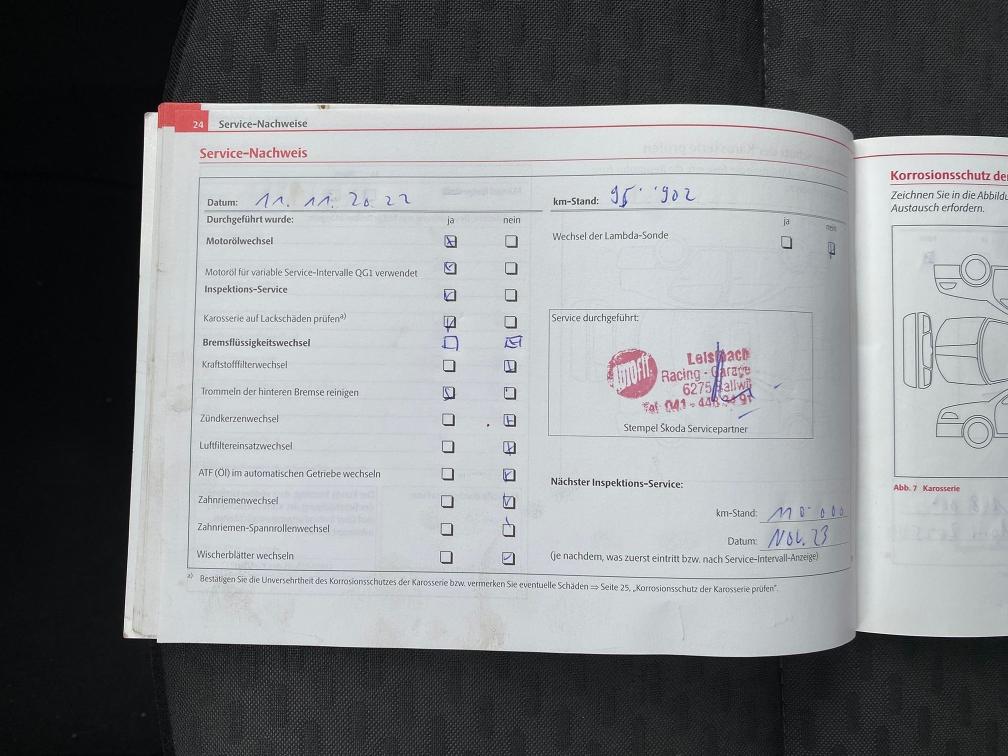 24 Service-Nachweise
Service-Nachweis
Datum: 11. 11. 2022
Durchgeführt wurde: ja nein
Motorölwechsel
Motoröl für variable Service-Intervalle QG1 verwendet
Inspektions-Service
Karosserie auf Lackschäden prüfen a)
Bremsflüssigkeitswechsel
Kraftstofffilterwechsel
Trommeln der hinteren Bremse reinigen
Zündkerzenwechsel
Luftfiltereinsatzwechsel
ATF (Öl) im automatischen Getriebe wechseln
Zahnriemenwechsel
Zahnriemen-Spannrollenwechsel
Wischerblätter wechseln
km-Stand: 95''902
ja nein
Wechsel der Lambda-Sonde
Service durchgeführt:
Leisibach
Racing - Garage
6275 Ballwil
Tel. 041 - 448
Stempel Škoda Servicepartner
Nächster Inspektions-Service:
km-Stand: 110'000
Datum: Nov. 23
(je nachdem, was zuerst eintritt bzw. nach Service-Intervall-Anzeige)
a) Bestätigen Sie die Unversehrtheit des Korrosionsschutzes der Karosserie bzw. vermerken Sie eventuelle Schäden ⇒ Seite 25, „Korrosionsschutz der Karosserie prüfen“.
Korrosionsschutz der
Zeichnen Sie in die Abbildu
Austausch erfordern.
Abb. 7 Karosserie